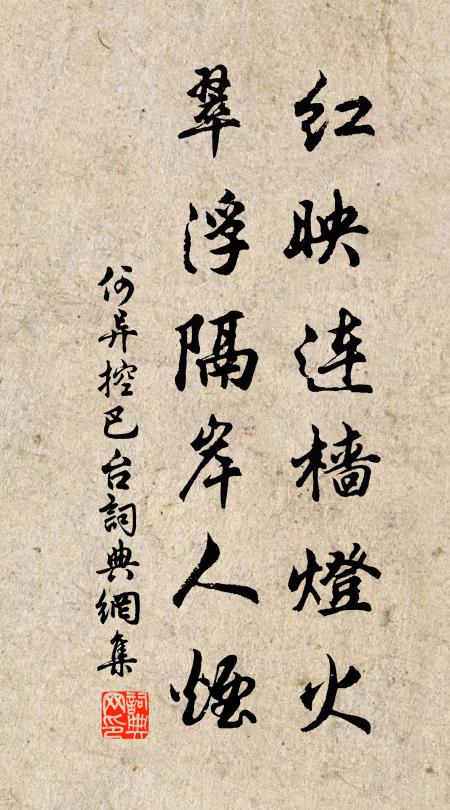 红映连樯燈火
翠浮隔岸人煙
何异控巴台詞典網集
詞典网印